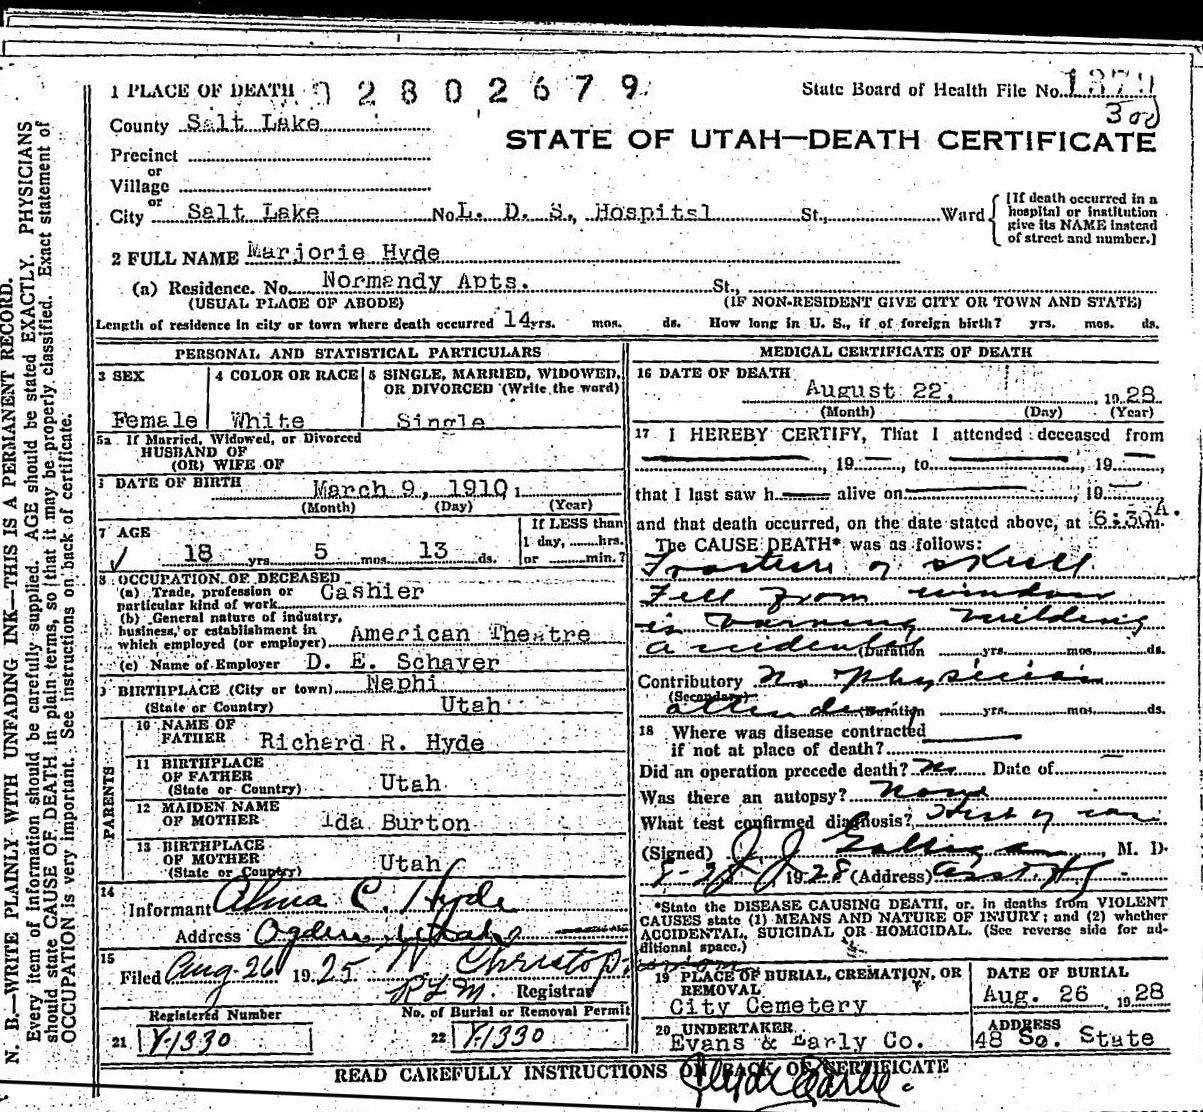 1 PLACE OF DEATH 02802679
State Board of Health File No. 1379
300
County Salt Lake
STATE OF UTAH—DEATH CERTIFICATE
Precinct
or
Village
or
City Salt Lake No. L. D. S., Hospitsl St., Ward
[If death occurred in a
hospital or institution
give its NAME instead
of street and number.]
2 FULL NAME Marjorie Hyde
(a) Residence. No. Normandy Apts. St.,
(USUAL PLACE OF ABODE) (IF NON-RESIDENT GIVE CITY OR TOWN AND STATE)
Length of residence in city or town where death occurred 14 yrs. mos. ds. How long in U. S., if of foreign birth? yrs. mos. ds.
PERSONAL AND STATISTICAL PARTICULARS
3 SEX
Female
4 COLOR OR RACE
White
5 SINGLE, MARRIED, WIDOWED,
OR DIVORCED (Write the word)
Single
5a If Married, Widowed, or Divorced
HUSBAND OF
(OR) WIFE OF
DATE OF BIRTH March 9, 1910
(Month) (Day) (Year)
7 AGE
18 yrs. 5 mos. 13 ds.
If LESS than
1 day, hrs.
or min.?
8 OCCUPATION OF DECEASED
(a) Trade, profession or
particular kind of work Cashier
(b) General nature of industry,
business, or establishment in
which employed (or employer) American Theatre
(c) Name of Employer D. E. Schayer
9 BIRTHPLACE (City or town) Nephi
(State or Country) Utah
PARENTS
10 NAME OF
FATHER Richard R. Hyde
11 BIRTHPLACE
OF FATHER
(State or Country) Utah
12 MAIDEN NAME
OF MOTHER Ida Burton
13 BIRTHPLACE
OF MOTHER
(State or Country) Utah
14
Informant Alma C. Hyde
Address Ogden, Utah
15
Filed Aug-26 1925 W Christop
RLM. Registrar
Registered Number No. of Burial or Removal Permit
21 Y-1330 22 Y-1330
MEDICAL CERTIFICATE OF DEATH
16 DATE OF DEATH
August 22, 1928
(Month) (Day) (Year)
17 I HEREBY CERTIFY, That I attended deceased from
, 19 , to , 19 ,
that I last saw h alive on , 19
and that death occurred, on the date stated above, at 6:30 A.m.
The CAUSE DEATH* was as follows:
Fracture of skull
Fell from window
in burning building
accidental (Duration yrs. mos. ds.
Contributory No physician
(Secondary)
attending (Duration yrs. mos. ds.
18 Where was disease contracted
if not at place of death?
Did an operation precede death? No Date of
Was there an autopsy? None
What test confirmed diagnosis? Hist of
(Signed) J. J. Galligan, M. D.
8-25 1928 (Address)
*State the DISEASE CAUSING DEATH, or, in deaths from VIOLENT
CAUSES state (1) MEANS AND NATURE OF INJURY; and (2) whether
ACCIDENTAL, SUICIDAL OR HOMICIDAL. (See reverse side for ad-
ditional space.)
19 PLACE OF BURIAL, CREMATION, OR
REMOVAL
City Cemetery
DATE OF BURIAL
Aug. 26 , 1928
20 UNDERTAKER
Evans & Early Co.
ADDRESS
48 So. State
READ CAREFULLY INSTRUCTIONS ON BACK OF CERTIFICATE
Clyde Earle
N. B.—WRITE PLAINLY WITH UNFADING INK—THIS IS A PERMANENT RECORD.
Every item of information should be carefully supplied. AGE should be stated EXACTLY. PHYSICIANS
should state CAUSE OF DEATH in plain terms, so that it may be properly classified. Exact statement of
OCCUPATION is very important. See instructions on back of certificate.